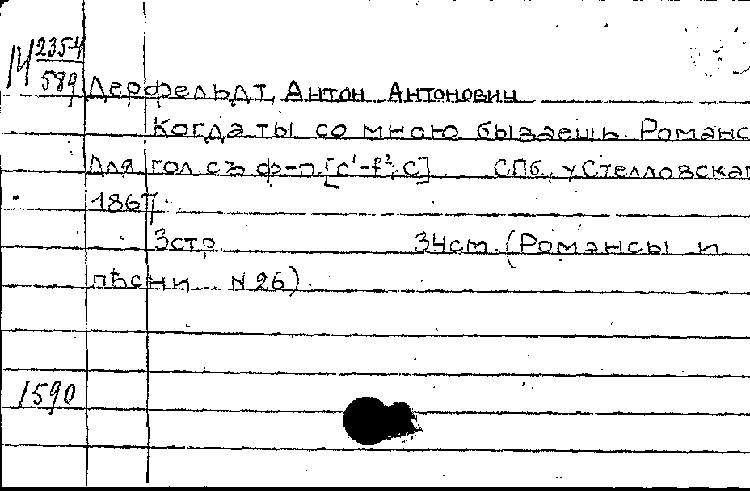 М 2354/589
Дерфельдт, Антон Антонович
Когда ты со мною бываешь. Романс
для гол съ ф-п. [c¹-f²; C] СПб., у Стелловскаг
1867.
3 стр 34 см. (Романсы и
пѣсни N 26)
1590